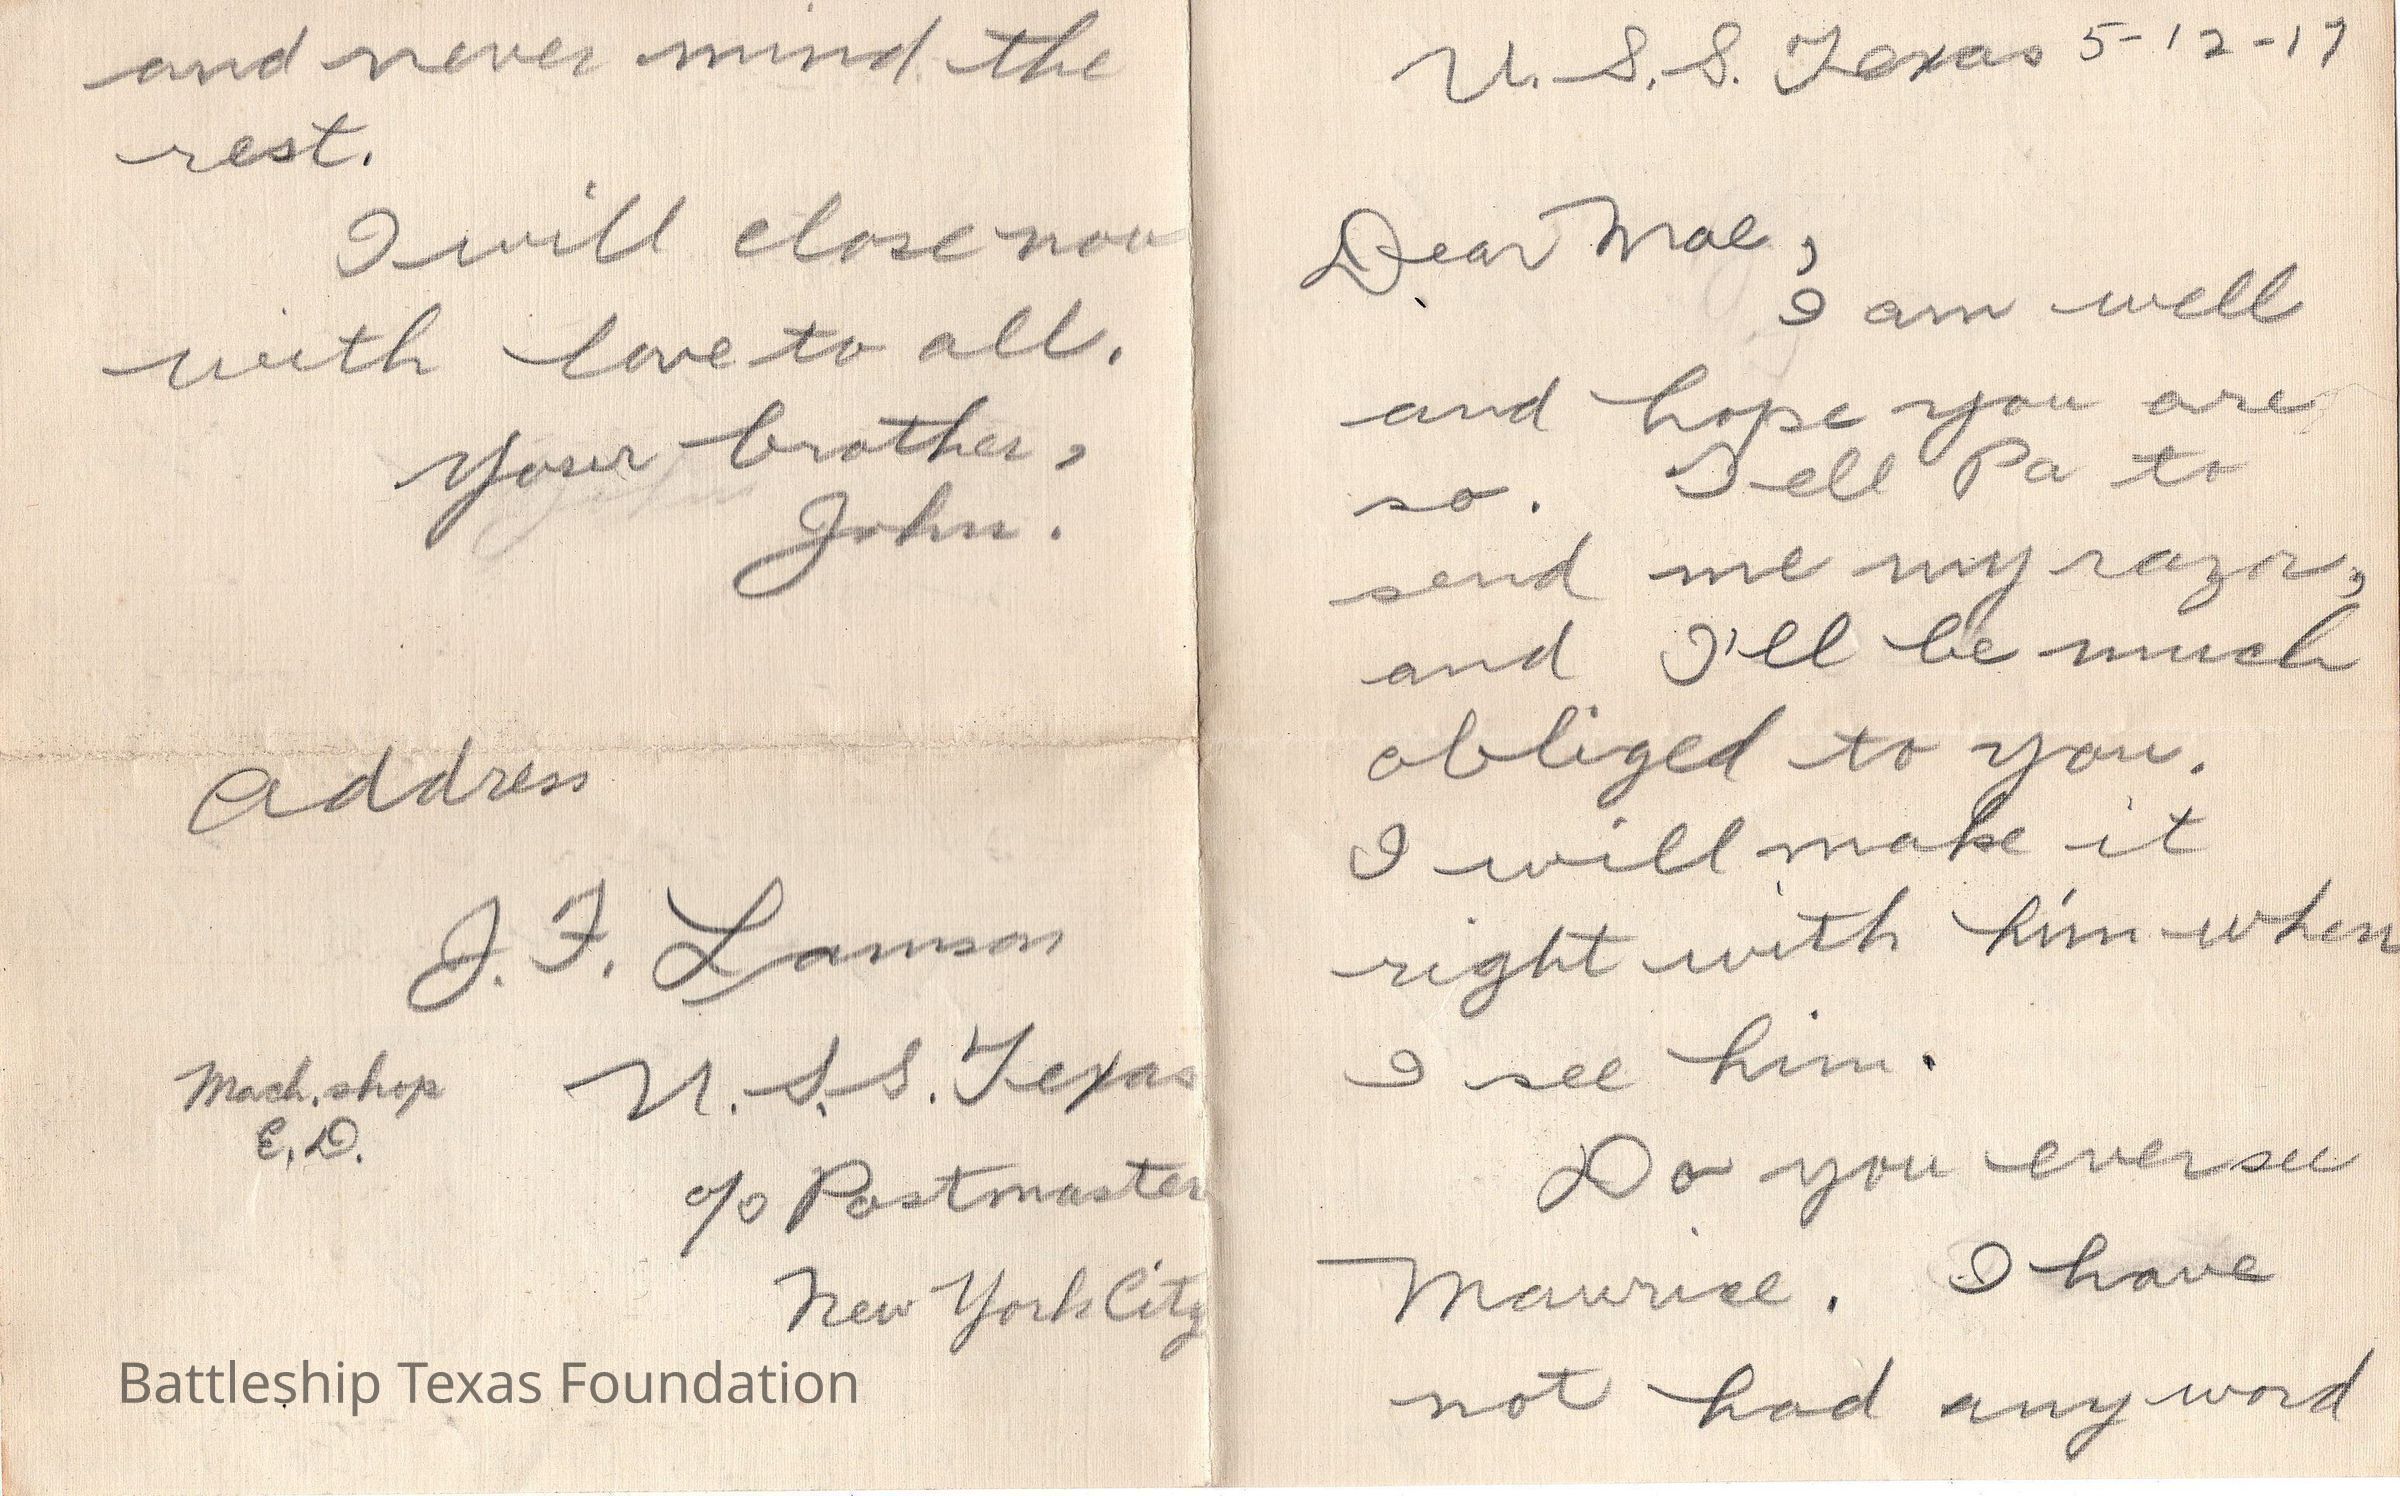 U. S. S. Texas 5-12-17
Dear Mae,
I am well
and hope you are
so. Tell Pa to
send me my razor,
and I'll be much
obliged to you.
I will make it
right with him when
I see him.
Do you ever see
Maurice. I have
not had any word
and never mind the
rest.
I will close now
with love to all.
Your brother,
John.
Address
J. F. Lamson
Mach. shop
E. D.
U. S. S. Texas
c/o Postmaster
New York City
Battleship Texas Foundation